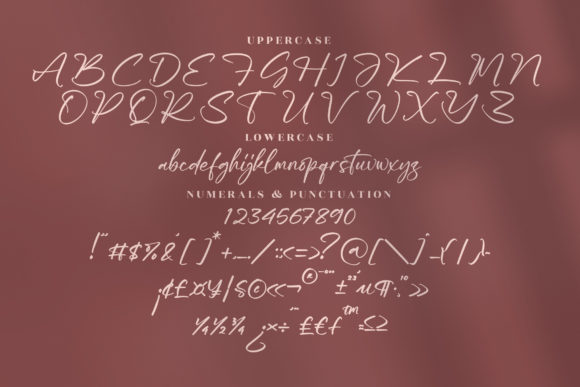 UPPERCASE
ABCDEFGHIJKLMN
OPQRSTUVWXYZ
LOWERCASE
abcdefghijklmnopqrstuvwxyz
NUMERALS & PUNCTUATION
1234567890
!"#$%&'[]*+,-./:;<=>?@[\]^_{|}~
¡¢£¤¥|§©«¬®¯°±²³´µ¶·¸¹º»
¼½¾¿×÷